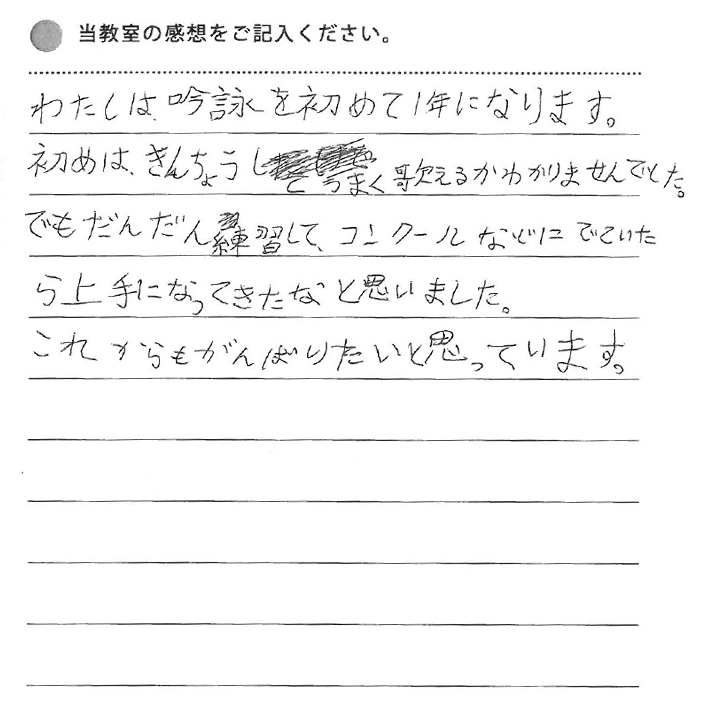 当教室の感想をご記入ください。
わたしは、吟詠を初めて1年になります。
初めは、きんちょうしてうまく歌えるかわかりませんでした。
でもだんだん練習して、コンクールなどにでていた
ら上手になってきたなと思いました。
これからもがんばりたいと思っています。